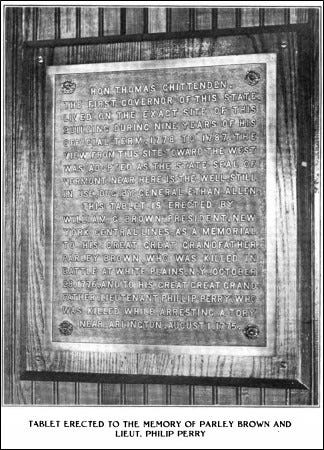 HON. THOMAS CHITTENDEN,
THE FIRST GOVERNOR OF THIS STATE
LIVED ON THE EXACT SITE OF THIS
BUILDING DURING NINE YEARS OF HIS
OFFICIAL TERM, 1778 TO 1787. THE
VIEW FROM THIS SITE TOWARD THE WEST
WAS ADOPTED AS THE STATE SEAL OF
VERMONT. NEAR HERE IS THE WELL STILL
IN USE, DUG BY GENERAL ETHAN ALLEN.
THIS TABLET IS ERECTED BY
WILLIAM C. BROWN, PRESIDENT, NEW
YORK CENTRAL LINES, AS A MEMORIAL
TO HIS GREAT GREAT GRANDFATHER
PARLEY BROWN, WHO WAS KILLED IN
BATTLE AT WHITE PLAINS, N.Y. OCTOBER
1776, AND TO HIS GREAT GREAT GRAND
FATHER, LIEUTENANT PHILLIP PERRY, WHO
WAS KILLED WHILE ARRESTING A TORY
NEAR ARLINGTON, AUGUST 1, 1775.
TABLET ERECTED TO THE MEMORY OF PARLEY BROWN AND
LIEUT. PHILIP PERRY